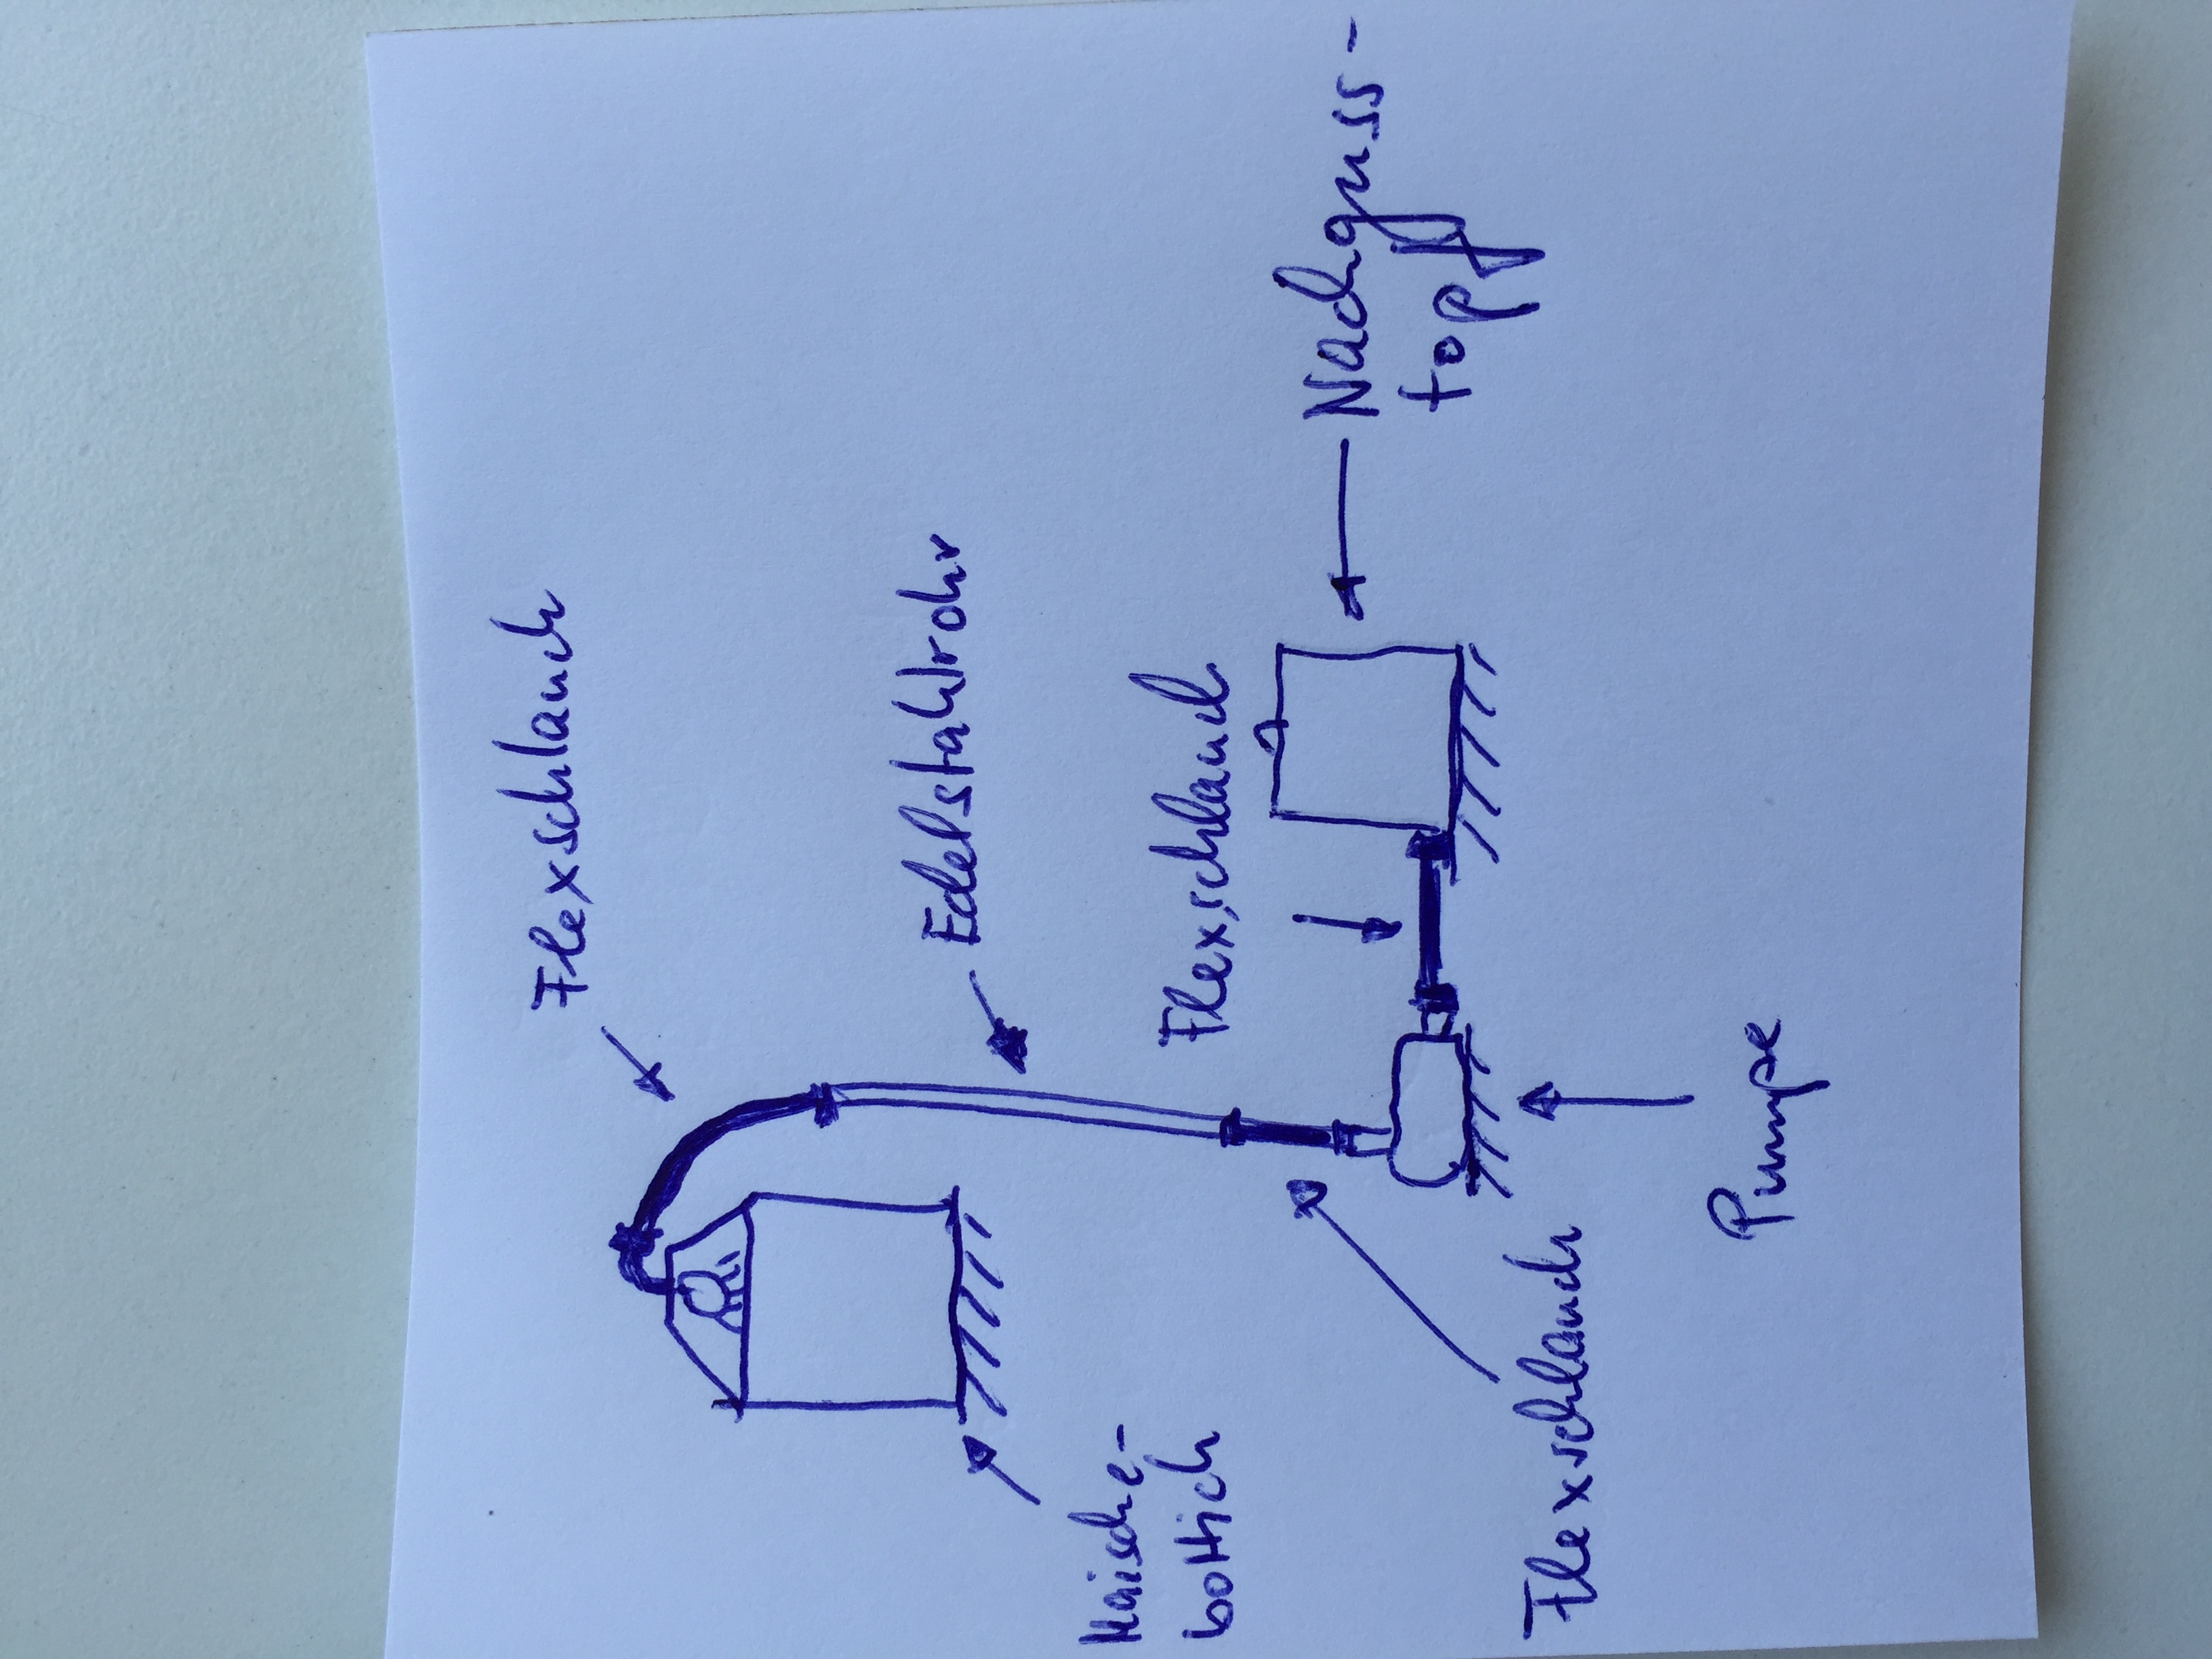 Flexschlauch
Edelstahlrohr
Maische-
bottich
Flexschlauch
Nachguss-
topf
Flexschlauch
Pumpe